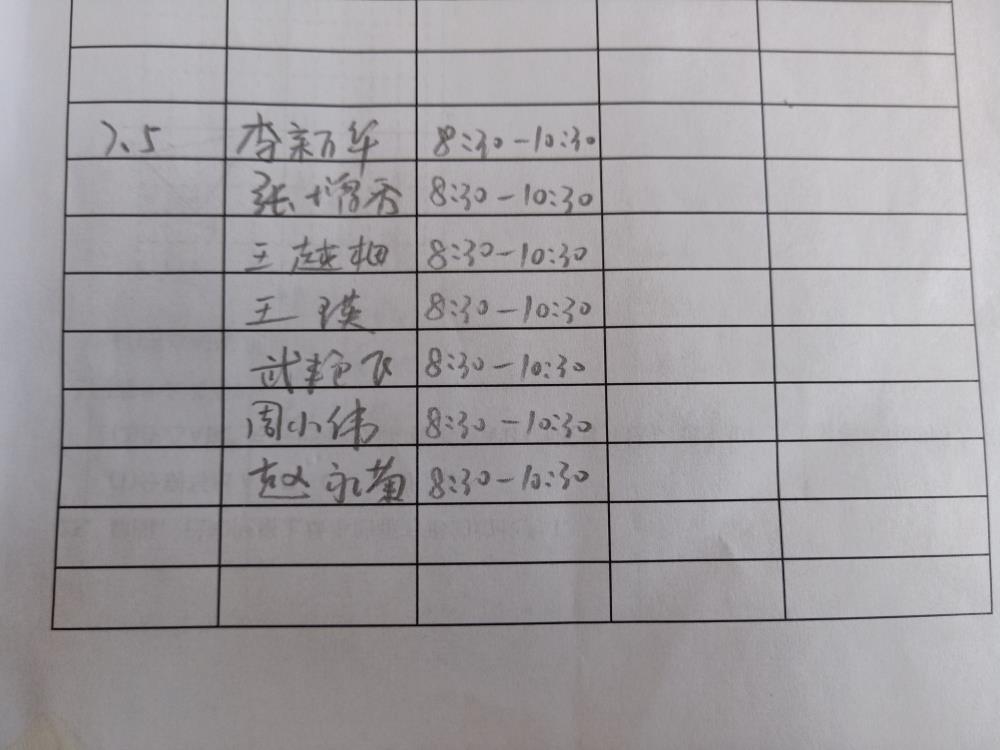 7.5 李新华 8:30-10:30
张增秀 8:30-10:30
王越相 8:30-10:30
王瑛 8:30-10:30
武艳飞 8:30-10:30
周小伟 8:30-10:30
赵永菊 8:30-10:30